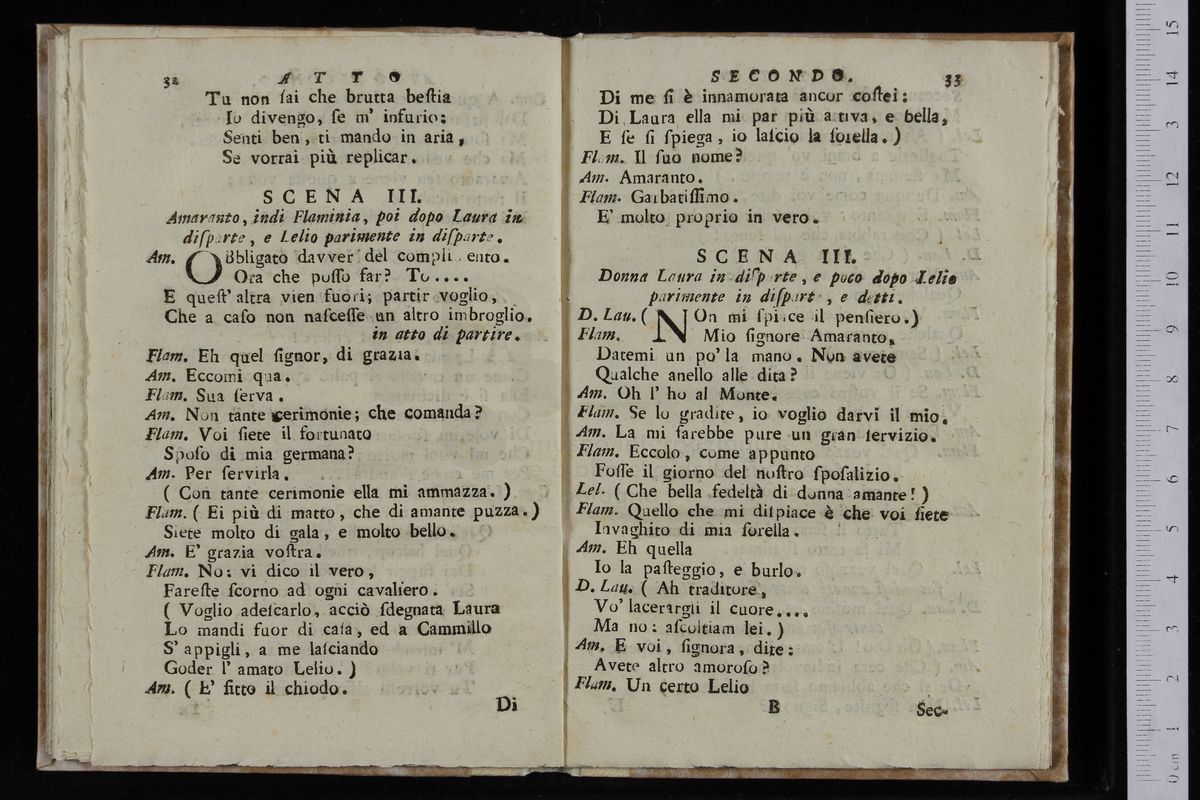 32 ATTO
Tu non ſai che brutta beſtia
Io divengo, ſe m' infurio:
Senti ben, ti mando in aria,
Se vorrai più replicar.
SCENA III.
Amaranto, indi Flaminia, poi dopo Laura in
diſparte, e Lelio parimente in diſparte.
Am. OBbligato davver del compli ento.
Ora che poſſo far? To....
E queſt' altra vien fuori; partir voglio,
Che a caſo non naſceſſe un altro imbroglio.
in atto di partire.
Flam. Eh quel ſignor, di grazia.
Am. Eccomi qua.
Flam. Sua ſerva.
Am. Non tante cerimonie; che comanda?
Flam. Voi ſiete il fortunato
Spoſo di mia germana?
Am. Per ſervirla.
( Con tante cerimonie ella mi ammazza. )
Flam. ( Ei più di matto, che di amante puzza. )
Siete molto di gala, e molto bello.
Am. E' grazia voſtra.
Flam. No: vi dico il vero,
Fareſte ſcorno ad ogni cavaliero.
( Voglio adeſcarlo, acciò ſdegnata Laura
Lo mandi fuor di caſa, ed a Cammillo
S' appigli, a me laſciando
Goder l' amato Lelio. )
Am. ( E' fitto il chiodo.
Di
SECONDO. 33
Di me ſi è innamorata ancor coſtei:
Di Laura ella mi par più attiva, e bella,
E ſe ſi ſpiega, io laſcio la ſorella. )
Flam. Il ſuo nome?
Am. Amaranto.
Flam. Garbatiſſimo.
E' molto proprio in vero.
SCENA III.
Donna Laura in diſp rte, e poco dopo Lelio
parimente in diſpart , e detti.
D. Lau. ( NOn mi ſpiace il penſiero.)
Flam. Mio ſignore Amaranto,
Datemi un po' la mano. Non avete
Qualche anello alle dita?
Am. Oh l' ho al Monte.
Flam. Se lo gradite, io voglio darvi il mio.
Am. La mi farebbe pure un gran ſervizio.
Flam. Eccolo, come appunto
Foſſe il giorno del noſtro ſpoſalizio.
Lel. ( Che bella fedeltà di donna amante! )
Flam. Quello che mi diſpiace è che voi ſiete
Invaghito di mia ſorella.
Am. Eh quella
Io la paſteggio, e burlo.
D. Lau. ( Ah traditore,
Vo' lacerargli il cuore....
Ma no: aſcoltiam lei. )
Am. E voi, ſignora, dite:
Avete altro amoroſo?
Flam. Un certo Lelio
B Sec-
15
14
13
12
11
10
9
8
7
6
5
4
3
2
1
0 cm